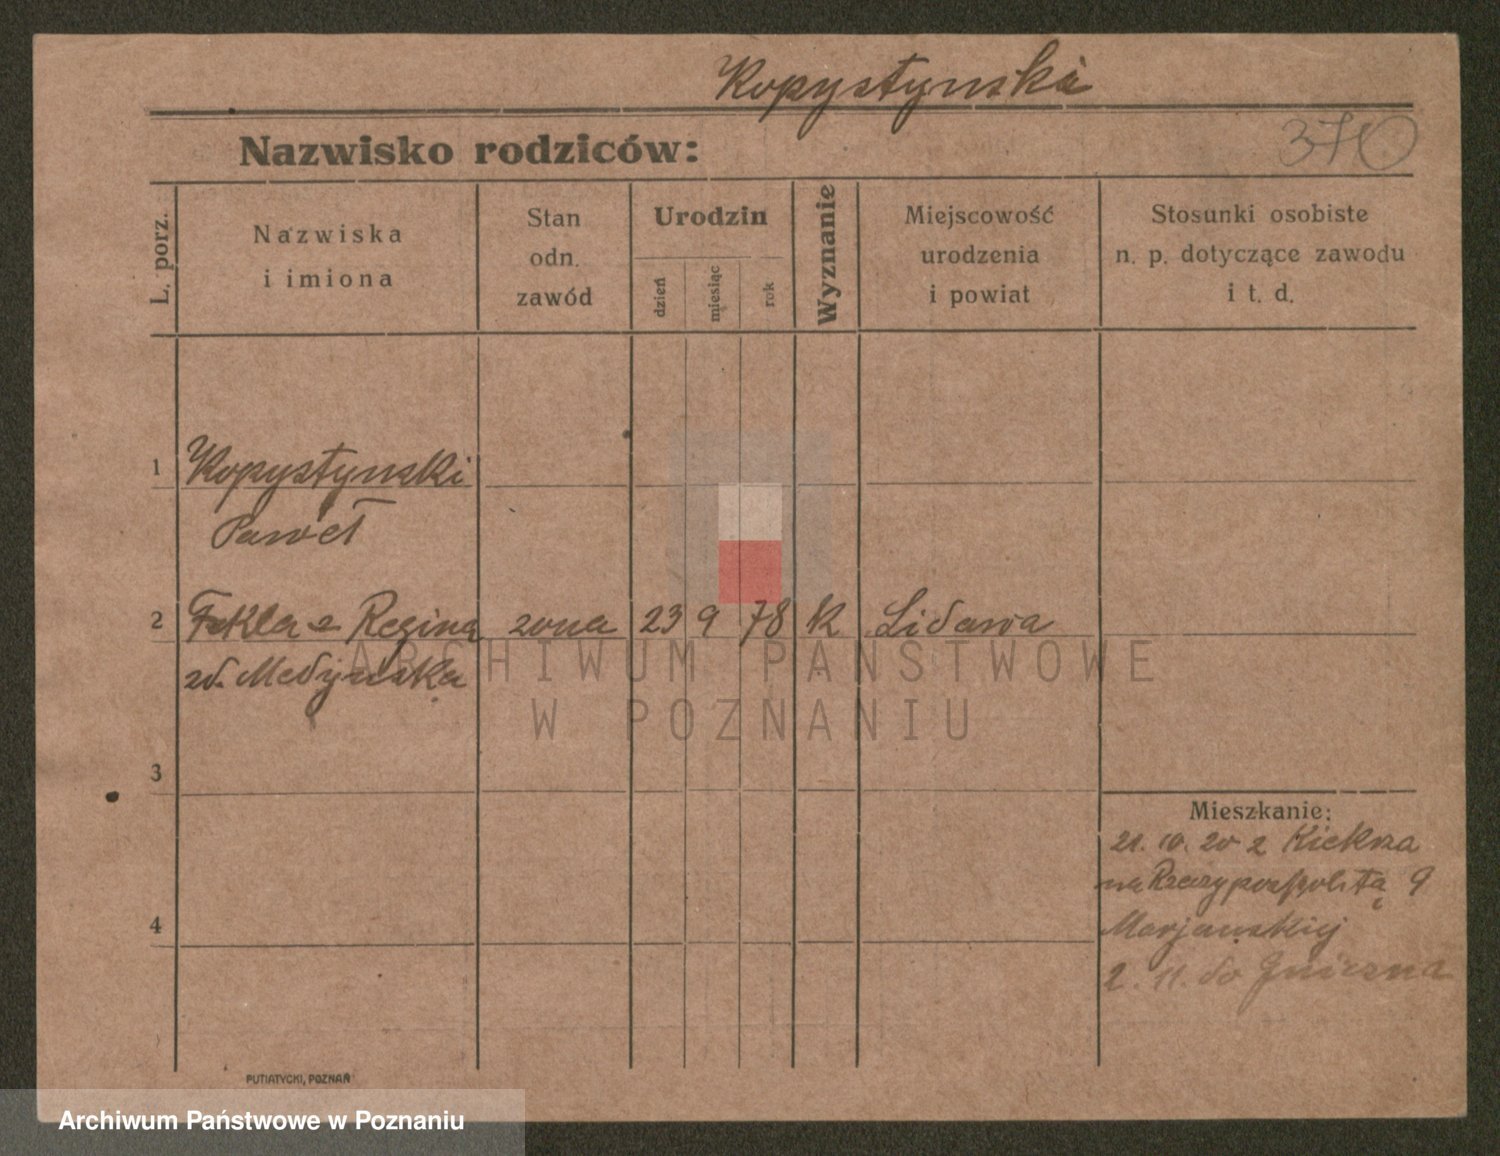 Kopystynski
370
Nazwisko rodziców:
L. porz.
Nazwiska
i imiona
Stan
odn.
zawód
Urodzin
dzień
miesiąc
rok
Wyznanie
Miejscowość
urodzenia
i powiat
Stosunki osobiste
n. p. dotyczące zawodu
i t. d.
1 Kopystynski
Paweł
2 Tekla Regina zona 23 9 78 k Lidawa
zd. Medynska
ARCHIWUM PAŃSTWOWE
W POZNANIU
3
Mieszkanie:
21. 10. 20 z Kiekrza
na Rzeczypospolitą 9
4
2. 11. do Gniezna
PUTIATYCKI, POZNAŃ
Archiwum Państwowe w Poznaniu